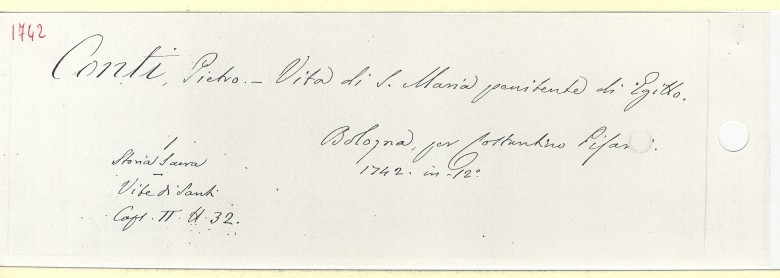 1742
Conti, Pietro. - Vita di S. Maria penitente di Egitto.
Bologna, per Costantino
1742. in-12º
Storia Sacra
Vite di Santi
Caps. II. H. 32.